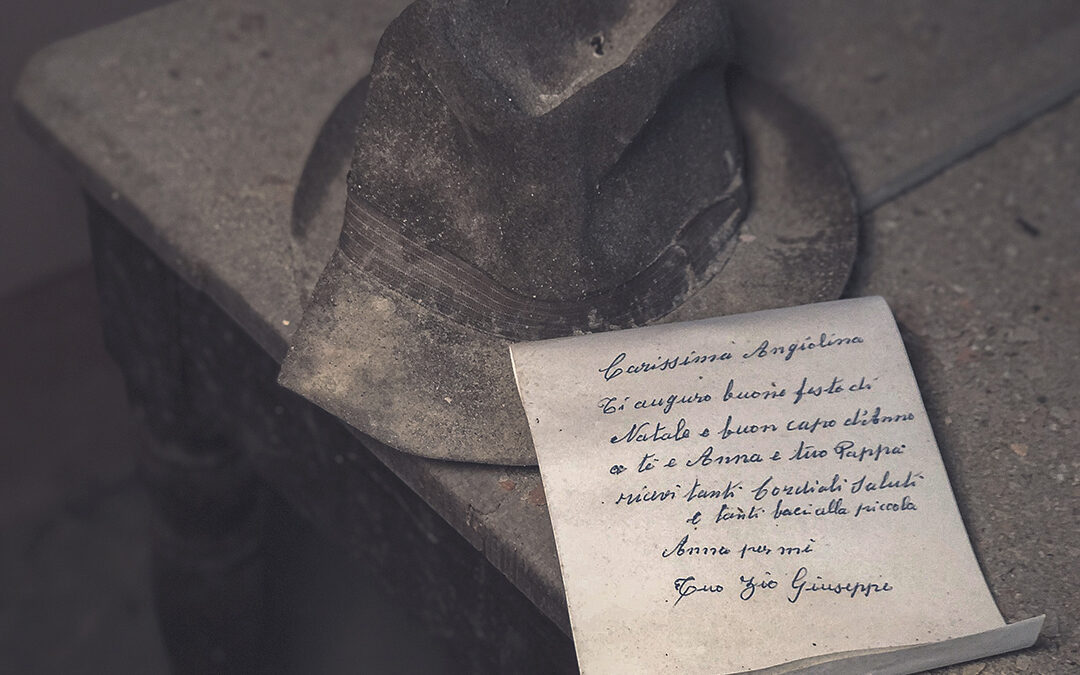 Carissima Angiolina
Ti auguro buone feste di
Natale e buon capo d'Anno
a te e Anna e tuo Pappa
ricevi tanti Cordiali Saluti
e tanti baci alla piccola
Anna per mè
Tuo Zio Giuseppe